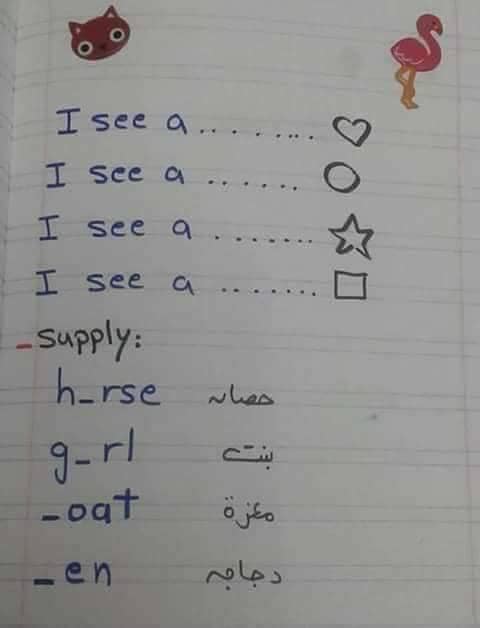 I see a ........
I see a ......
I see a .......
I see a .......
- supply:
h_rse حصان
g_rl بنت
_oat معزة
_en دجاجه